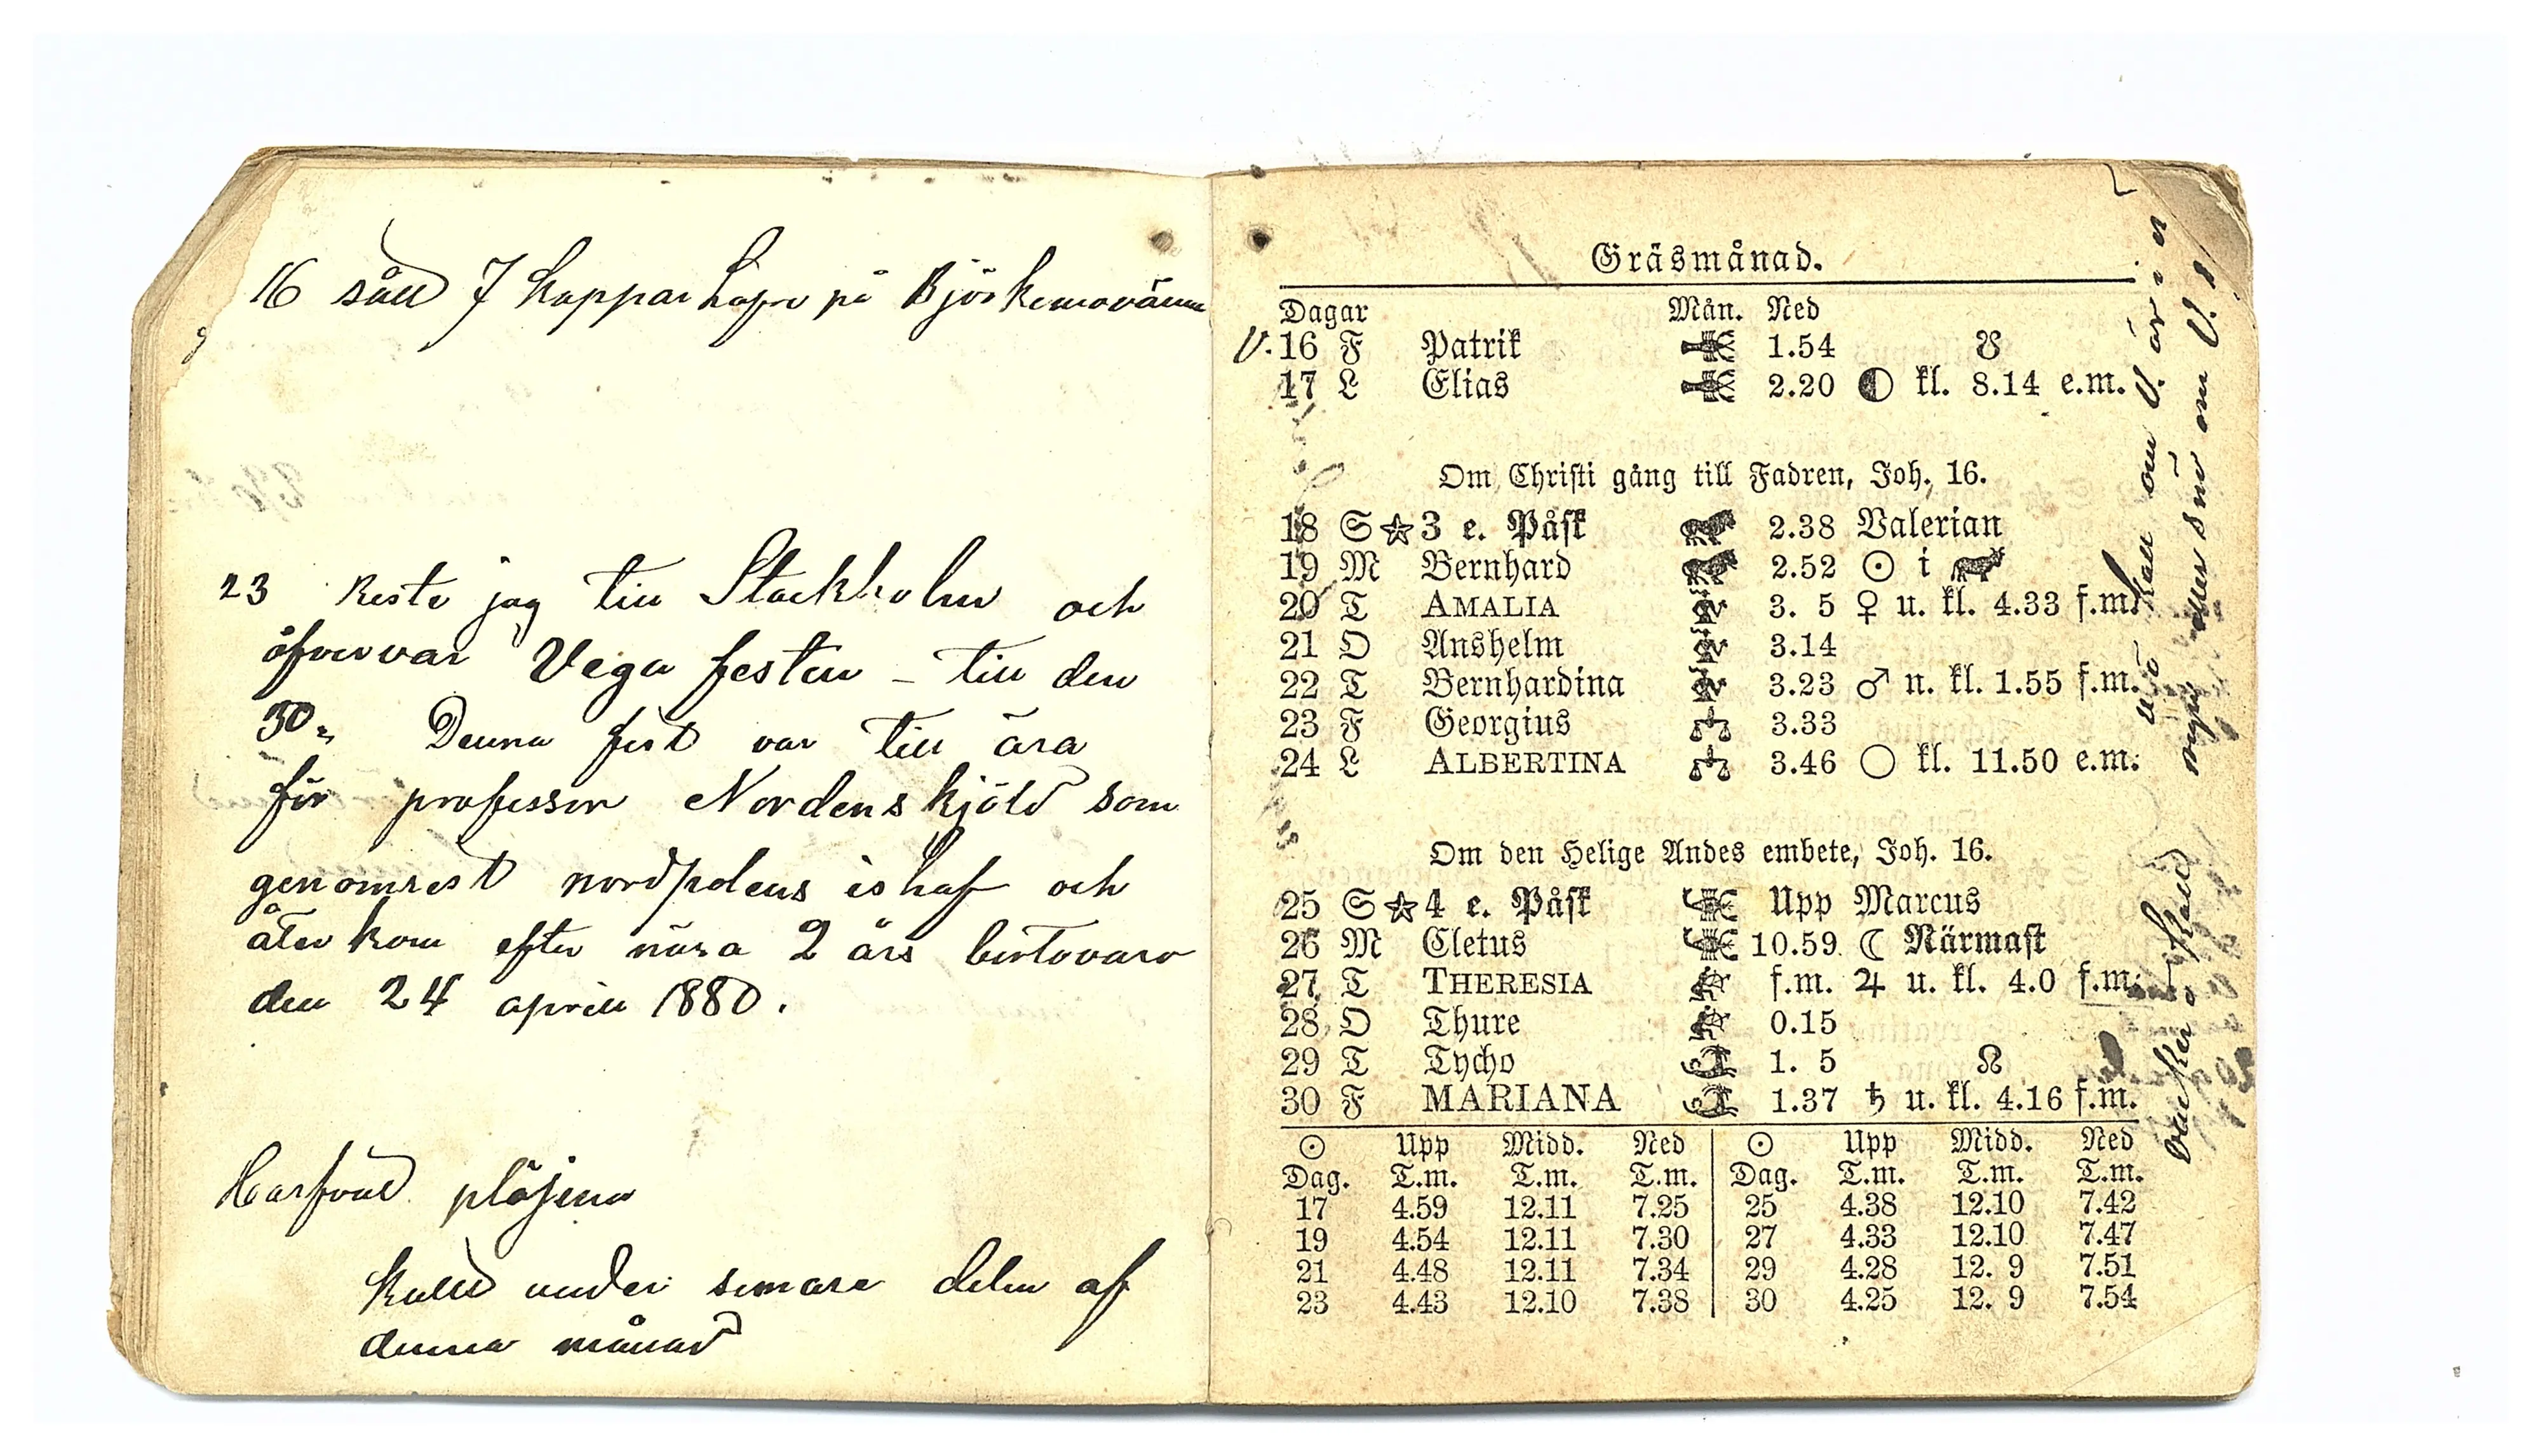 16 såd 7 kappar hafre på
23 Reste jag till Stockholm och
öfvervar Vega festen – till den
30. Denna fest var till ära
för professor Nordenskjöld som
genomrest nordpolens ishaf och
återkom efter nära 2 års bortovaro
den 24 april 1880.
plöjena
kalld under senare delen af
denna månad
Gräsmånad.
Dagar Mån. Ned
V. 16 F Patrik 1.54 ☋
17 L Elias 2.20 ◐ kl. 8.14 e.m.
Om Christi gång till Fadren, Joh. 16.
18 S ☆ 3 e. Påsk 2.38 Valerian
19 M Bernhard 2.52 ☉ i
20 T AMALIA 3. 5 ♀ u. kl. 4.33 f.m.
21 O Anshelm 3.14
22 T Bernhardina 3.23 ♂ n. kl. 1.55 f.m.
23 F Georgius 3.33
24 L ALBERTINA 3.46 ○ kl. 11.50 e.m.
Om den Helige Andes embete, Joh. 16.
25 S ☆ 4 e. Påsk Upp Marcus
26 M Cletus 10.59 ☾ Närmast
27 T THERESIA f.m. ♃ u. kl. 4.0 f.m.
28 O Thure 0.15
29 T Tycho 1. 5 ☊
30 F MARIANA 1.37 ♄ u. kl. 4.16 f.m.
☉ Upp Midd. Ned ☉ Upp Midd. Ned
Dag. T.m. T.m. T.m. Dag. T.m. T.m. T.m.
17 4.59 12.11 7.25 25 4.38 12.10 7.42
19 4.54 12.11 7.30 27 4.33 12.10 7.47
21 4.48 12.11 7.34 29 4.28 12. 9 7.51
23 4.43 12.10 7.38 30 4.25 12. 9 7.54
om V. är
snö om V.
vacker o kalld